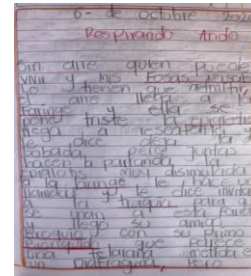 6- de octubre 202
Respirando Ando
Sin aire quien puede
vivir y mis fosas nasa
lo tienen que admitir,
el aire llega a
faringe y ella se
pone triste la epiglotis
llega a rescatarla
le dice deja la
bobada, pero juntas
hacen la parranda, la
epiglotis muy disimulada
a la laringe le hace una
llamada y le dice invita
a la traquia para q
se unan a esta fari
y llego su amigo
bronquio con su primo
bronquiolo que parece
una telaraña metida
un diafragma, pero